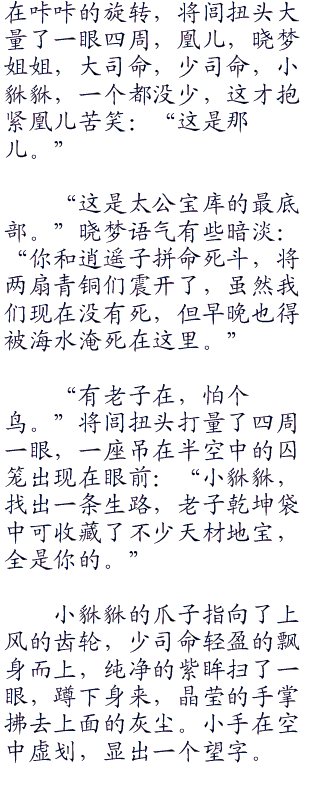 在咔咔的旋转，将闾扭头大
量了一眼四周，凰儿，晓梦
姐姐，大司命，少司命，小
貅貅，一个都没少，这才抱
紧凰儿苦笑：“这是那
儿。”
“这是太公宝库的最底
部。”晓梦语气有些暗淡：
“你和逍遥子拼命死斗，将
两扇青铜们震开了，虽然我
们现在没有死，但早晚也得
被海水淹死在这里。”
“有老子在，怕个
鸟。”将闾扭头打量了四周
一眼，一座吊在半空中的囚
笼出现在眼前：“小貅貅，
找出一条生路，老子乾坤袋
中可收藏了不少天材地宝，
全是你的。”
小貅貅的爪子指向了上
风的齿轮，少司命轻盈的飘
身而上，纯净的紫眸扫了一
眼，蹲下身来，晶莹的手掌
拂去上面的灰尘。小手在空
中虚划，显出一个望字。